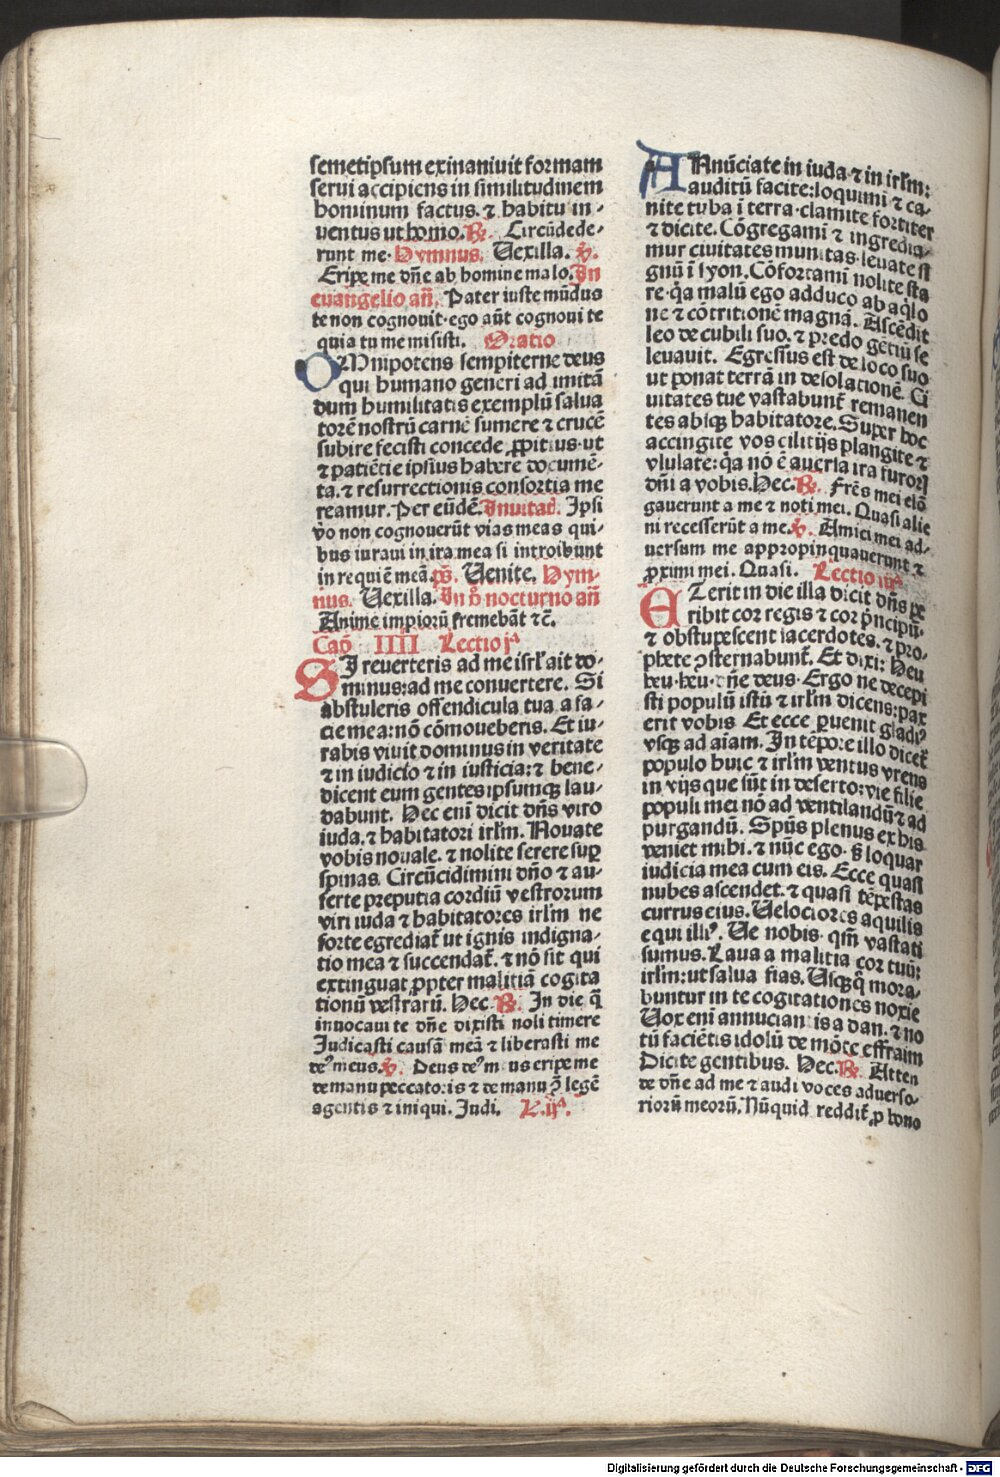 semetipsum exinaniuit formam
serui accipiens in similitudinem
hominum factus. ⁊ habitu in-
uentus ut homo. ℟. Circūdede-
runt me. Hymnus. Uexilla. ℣.
Eripe me dn̄e ab homine malo. In
euangelio an̄. Pater iuste mūdus
te non cognouit. ego aūt cognoui te
quia tu me misisti. Oratio
OMnipotens sempiterne deus
qui humano generi ad imitā
dum humilitatis exemplū salua
torē nostrū carnē sumere ⁊ crucē
subire fecisti concede ꝓpitius. ut
⁊ patiētie ipsius habere documē-
ta. ⁊ resurrectionis consortia me
reamur. Per eūdē. Inuitať. Ipsi
v̊o non cognouerūt vias meas qui-
bus iuraui in ira mea si introibunt
in requiē meā. ps̄. Uenite. Hym-
nus. Uexilla. In p̄ nocturno an̄
Anime impiorū fremebāt ⁊c̄.
Cap̄ IIII Lectio jᵃ
SI reuerteris ad me isrl̄ ait do-
minus: ad me conuertere. Si
abstuleris offendicula tua a fa-
cie mea: nō cōmoueberis. Et iu-
rabis viuit dominus in veritate
⁊ in iudicio ⁊ in iusticia: ⁊ bene-
dicent eum gentes ipsumqꝫ lau-
dabunt. Hec eni̅ dicit dn̄s viro
iuda. ⁊ habitatori irl̄m. Nouate
vobis nouale. ⁊ nolite serere suꝑ
spinas. Circūcidimini dn̄o ⁊ au-
ferte preputia cordiū vestrorum
viri iuda ⁊ habitatores irl̄m ne
forte egrediať ut ignis indigna-
tio mea ⁊ succendať. ⁊ nō sit qui
extinguat ꝓpter malitiā cogita
tionū vestrarū. Hec. ℟. In die q̄
inuocaui te dn̄e dixisti noli timere
Judicasti causā meā ⁊ liberasti me
deꝰ meus. ℣. Deus deꝰ m us eripe me
de manu peccatoris ⁊ de manu ꝯ̄ legē
agentis ⁊ iniqui. Judi. L. ijᵃ.
ANnūciate in iuda ⁊ in irl̄m:
auditū facite: loquimi̅ ⁊ ca-
nite tuba i̅ terra. clamite fortiter
⁊ dicite. Cōgregami̅ ⁊ ingredia-
mur ciuitates munitas. leuate si
gnū i̅ syon. Cōfortami̅ nolite sta
re. q̇a malū ego adduco ab aq̇lo
ne ⁊ cōtritionē magnā. Ascēdit
leo de cubili suo. ⁊ predo gētiū se
leuauit. Egressus est de loco suo
ut ponat terrā in desolationē. Ci
uitates tue vastabunť remanen
tes absqꝫ habitatore. Super hoc
accingite vos cilitijs plangite ⁊
vlulate: q̇a nō ē auersa ira furorꝭ
dn̄i a vobis. Hec. ℟. Frēs mei elō
gauerunt a me ⁊ noti mei. Quasi alie
ni recesserūt a me. ℣. Amici mei ad-
uersum me appropinquauerunt ⁊
ꝓximi mei. Quasi. Lectio iijᵃ
ET erit in die illa dicit dn̄s ꝑe
ribit cor regis ⁊ cor pi̅ncipū.
⁊ obstupescent sacerdotes. ⁊ pro-
phete ꝯsternabunť. Et dixi: Heu
heu. heu. dn̄e deus. Ergo ne decepi
sti populū istū ⁊ irl̄m dicens: pax
erit vobis Et ecce ꝑuenit gladiꝰ
vsqꝫ ad aīam. In tēpore illo diceť
populo huic ⁊ irl̄m ventus vrens
in vijs que sūt in deserto: vie filie
populi mei nō ad ventilandū ⁊ ad
purgandū. Spūs plenus ex his
veniet mihi. ⁊ nūc ego. sꝫ loquar
iudicia mea cum eis. Ecce quasi
nubes ascendet. ⁊ quasi tēpestas
currus eius. Uelociores aquilis
equi illiꝰ. Ue nobis. qm̄ vastati
sumus. Laua a malitia cor tuū:
irl̄m: ut salua fias. Usqꝫq̊ mora-
buntur in te cogitationes noxie
Uox eni̅ annuciantis a dan. ⁊ no
tū faciētis idolū de mōte effraim
Dicite gentibus. Hec. ℟. Atten
de dn̄e ad me ⁊ audi voces aduerso-
riorū meorū. Nūquid reddiť ꝓ bono
Digitalisierung gefördert durch die Deutsche Forschungsgemeinschaft - DFG